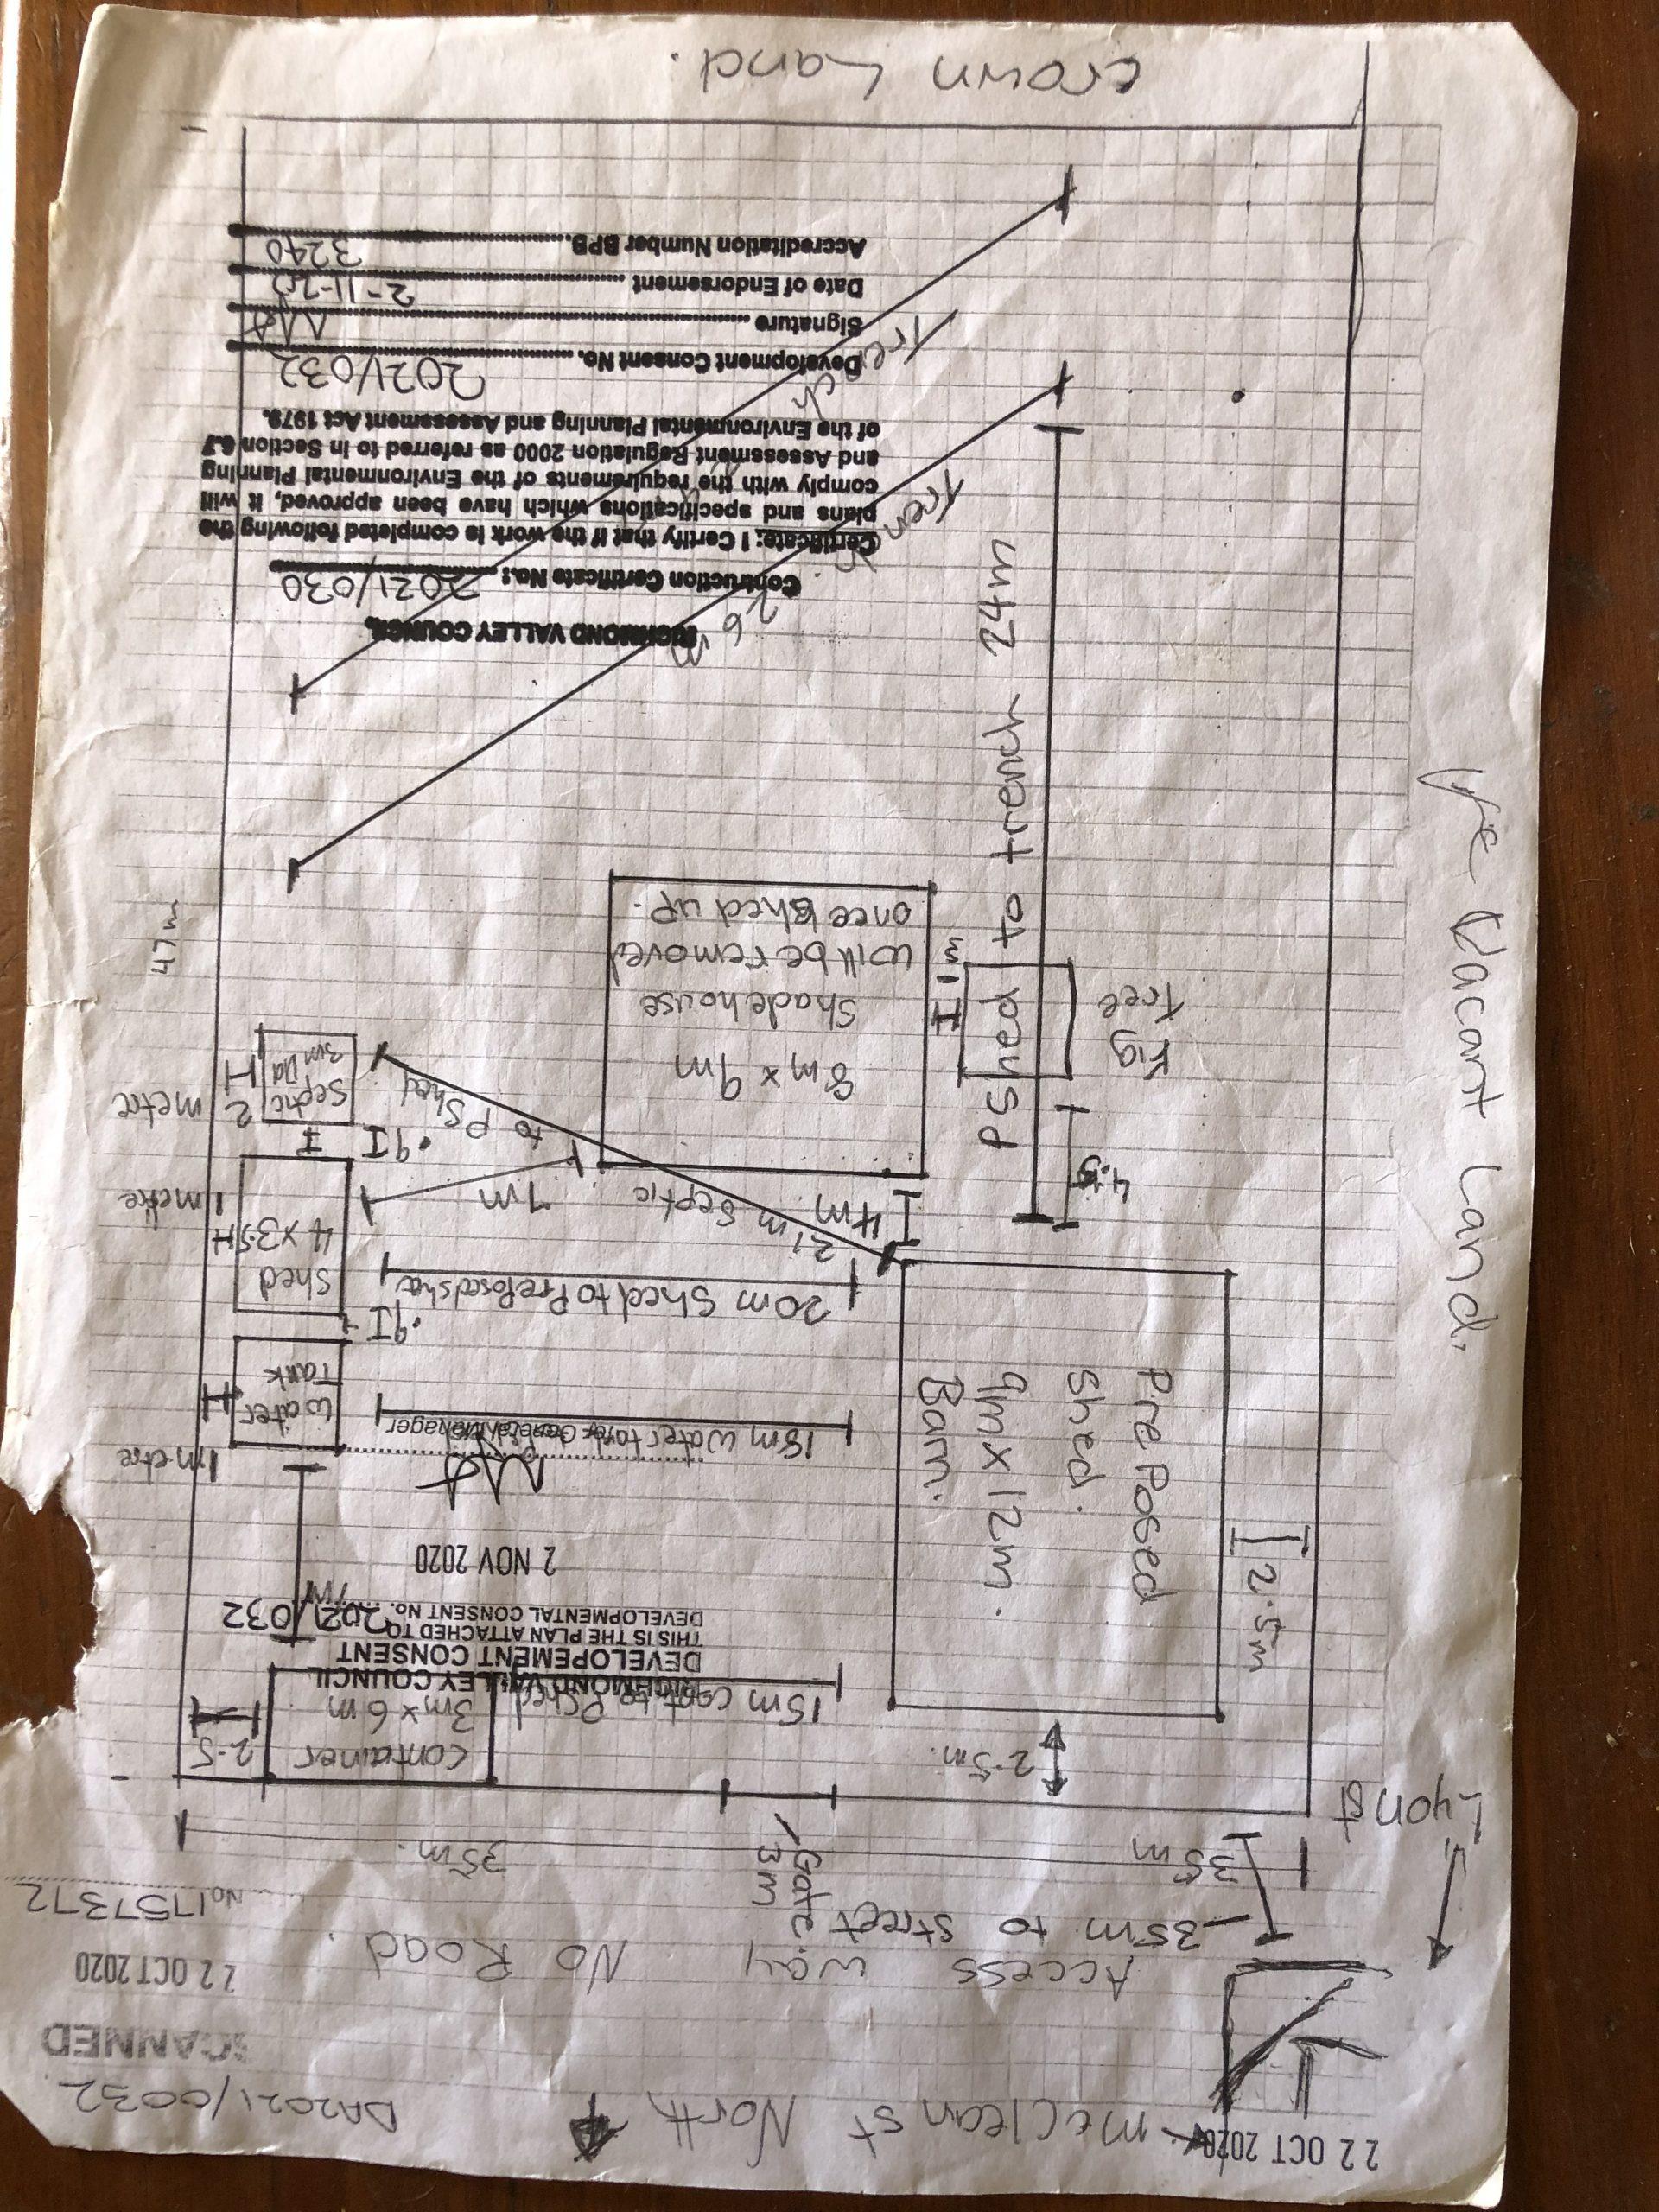 22 OCT 2020
DA2021/0032
SCANNED
22 OCT 2020
No 1757372
mcclean st North
Access way No Road.
35m to street
Lyon st
35m
Gate
3m
35m.
2.5m.
2.5
container
3m x 6m
15m cont to PShed
RICHMOND VALLEY COUNCIL
DEVELOPEMENT CONSENT
THIS IS THE PLAN ATTACHED TO
DEVELOPMENTAL CONSENT No. 2021/032
7m
2 NOV 2020
for General Manager
PrePosed
Shed.
9m x 12m.
Barn.
2.5m
15m water tank
1 metre
water
Tank
.9
20m Shed to PrePosed she
Shed
4 x 3.5
1 metre
.9
21m Septic to PShed
7m
4m
4.5
Septic
3m Dia
2
metre
8m x 9m
Shadehouse
will be removed
once shed up.
1 m
Fig
Tree
PShed to trench 24m
47m
26m
Trench
Trench
RICHMOND VALLEY COUNCIL
Contruction Certificate No.: 2021/030
Certificate: I Certify that if the work is completed following the
plans and specifications which have been approved, it will
comply with the requirements of the Environmental Planning
and Assessment Regulation 2000 as referred to in Section 6.7
of the Environmental Planning and Assessment Act 1979.
Development Consent No. 2021/032
Signature
Date of Endorsement 2-11-20
Accreditation Number BPB 3240
Vacant Land.
crown Land.